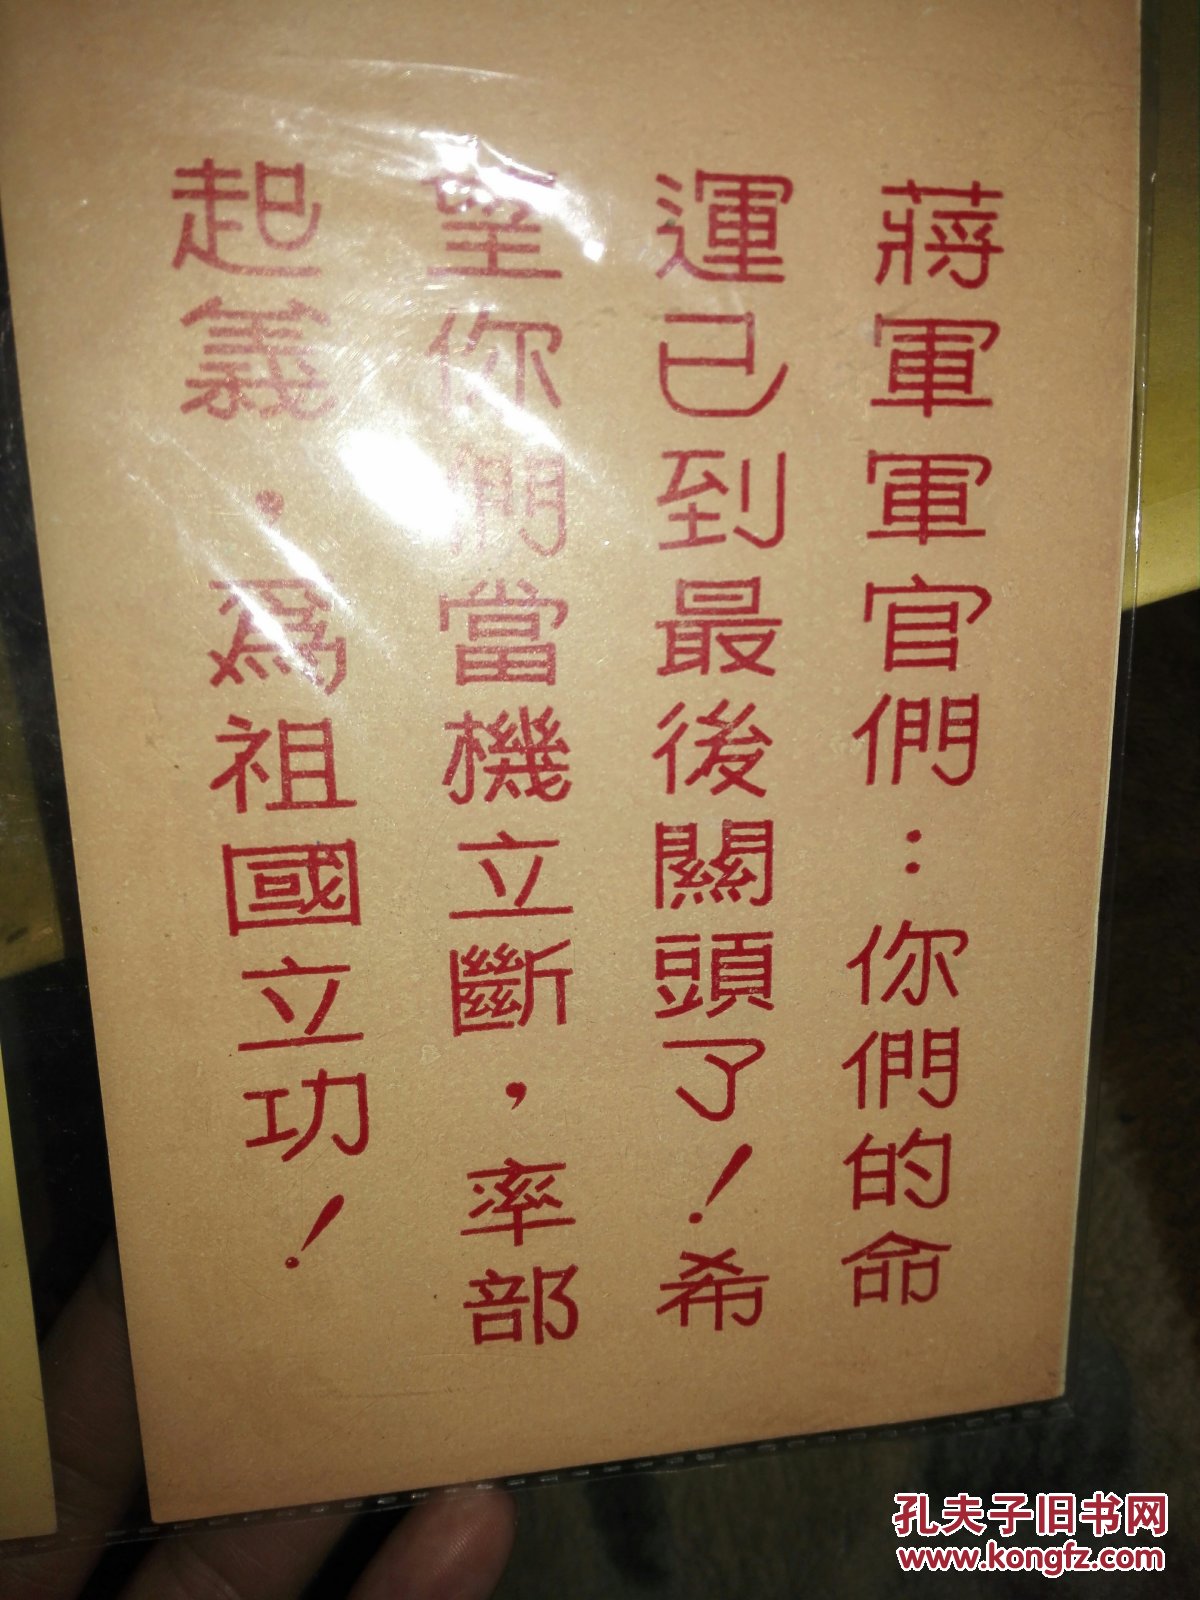 蔣軍軍官們：你們的命
運已到最後關頭了！希
望你們當機立斷，率部
起義，爲祖國立功！
孔夫子旧书网
www.kongfz.com